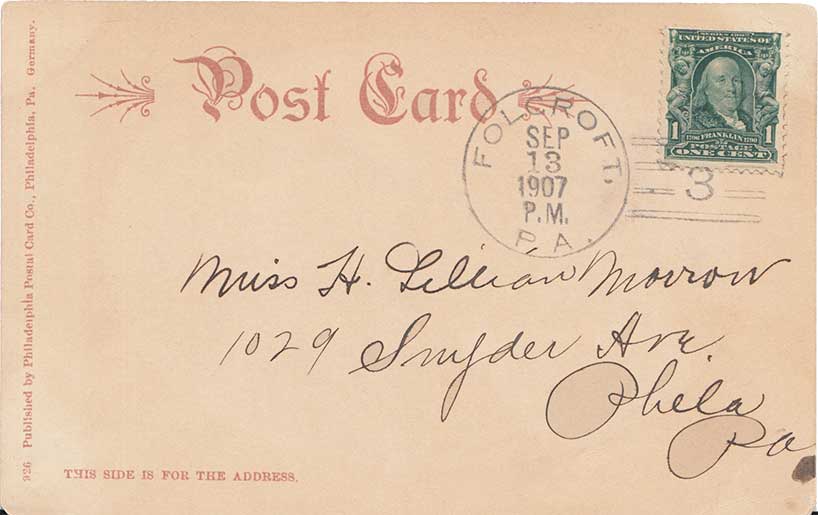 Post Card
SERIES 1902
UNITED STATES OF
AMERICA
1 1
1706 FRANKLIN 1790
POSTAGE
ONE CENT
FOLCROFT,
SEP
13
1907
P.M.
PA.
3
Miss H. Lillian Morrow
1029 Snyder Ave.
Phila
Pa
THIS SIDE IS FOR THE ADDRESS.
926 Published by Philadelphia Postal Card Co., Philadelphia, Pa. Germany.